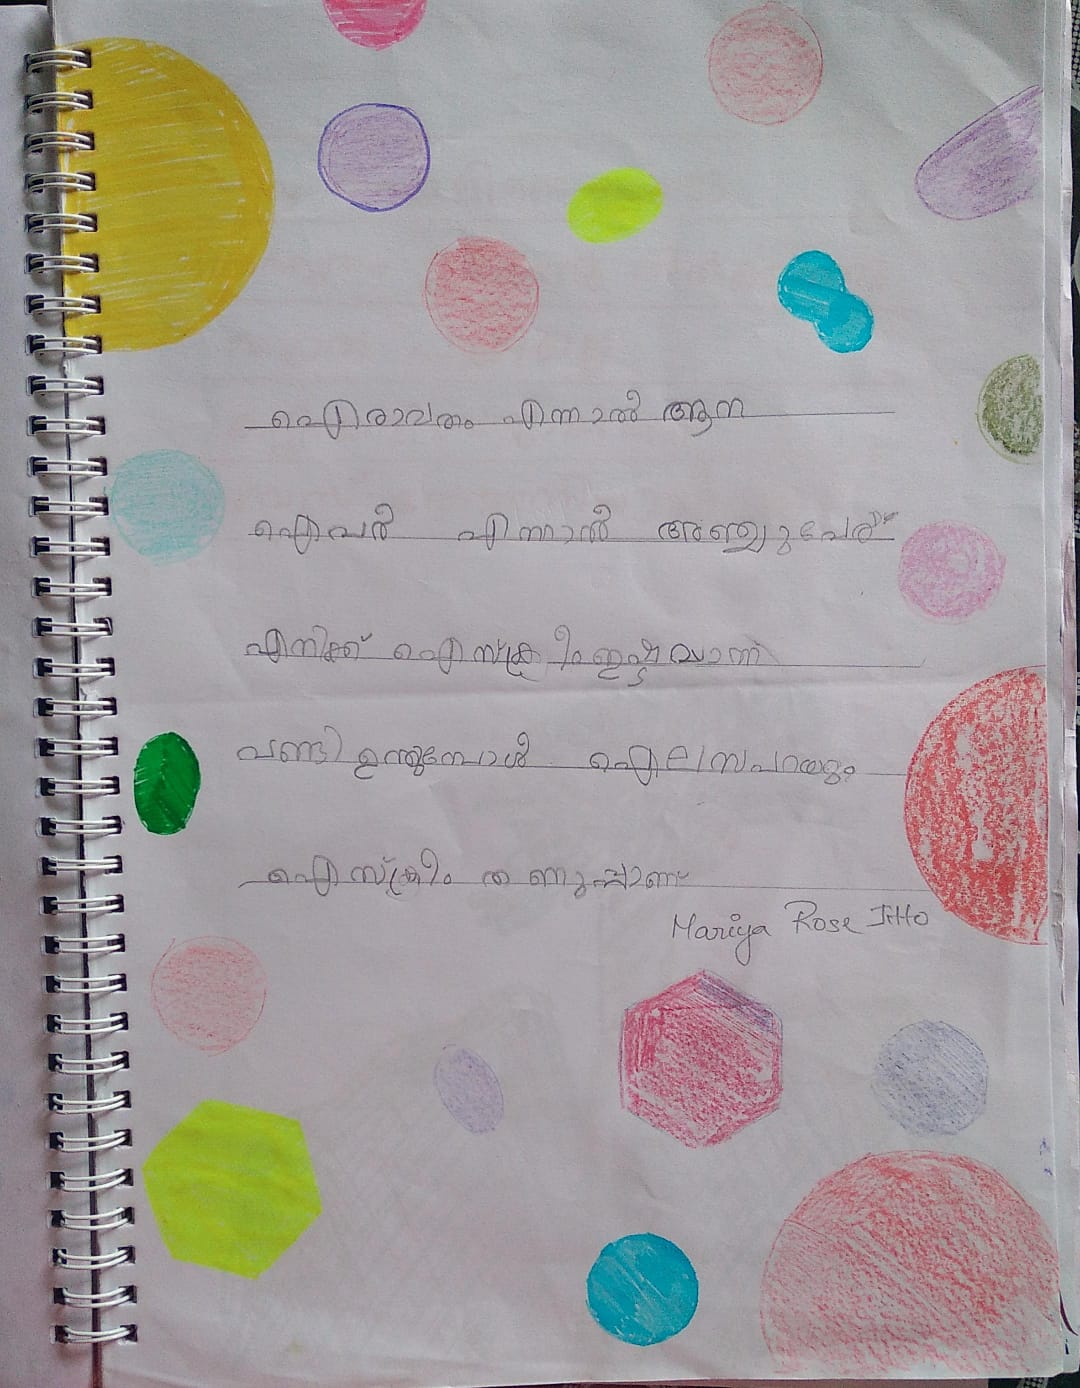 ഐരാവതം എന്നാൽ ആന
ഐവർ എന്നാൽ അഞ്ചുപേര്
എനിക്ക് ഐസ്ക്രീം ഇഷ്ടമാണ്
വണ്ടി ഉന്തുമ്പോൾ ഐലസ പറയും
ഐസ്ക്രീം തണുപ്പാണ്
Mariya Rose Jitto